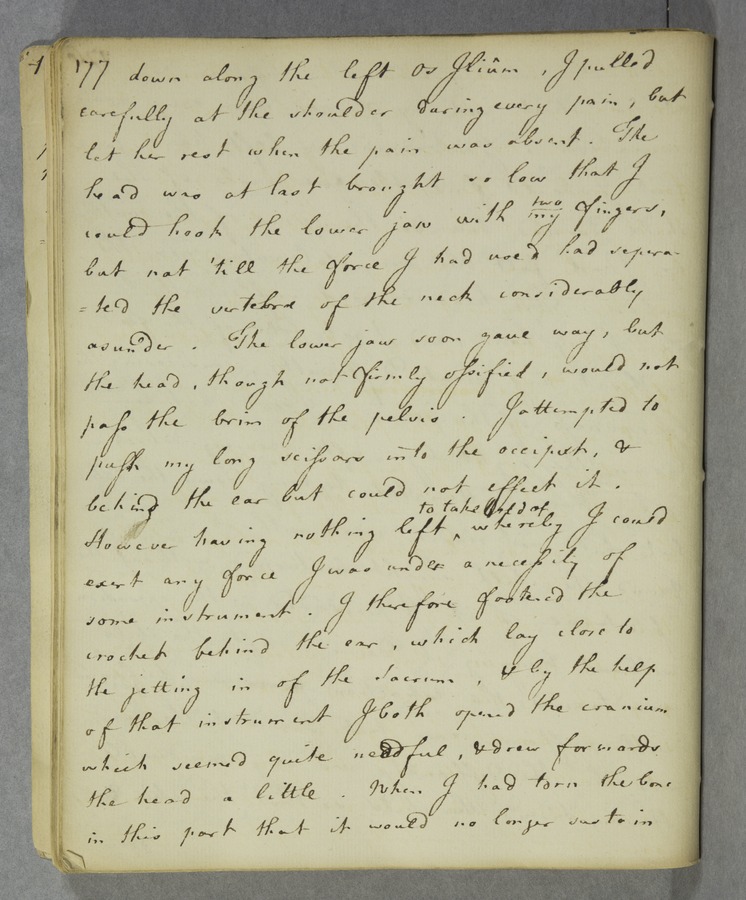 177 down along the left Os Ilium, I pulled
carefully at the shoulder during every pain, but
let her rest when the pain was absent. The
head was at last brought so low that I
could hook the lower jaw with two my fingers,
but not 'till the force I had used had sepera-
=ted the vertebræ of the neck considerably
asunder. The lower jaw soon gave way, but
the head, though not firmly ossified, would not
pass the brim of the pelvis. I attempted to
push my long scissars into the occiput, &
behind the ear but could not effect it.
However having nothing left to take hold of, whereby I could
exert any force I was under a necessity of
some instrument. I therefore fastened the
crochet behind the ear, which lay close to
the jetting in of the Sacrum, & by the help
of that instrument I both opened the cranium
which seemed quite needful, & drew forwards
the head a little. When I had torn the bone
in this part that it would no longer sustain